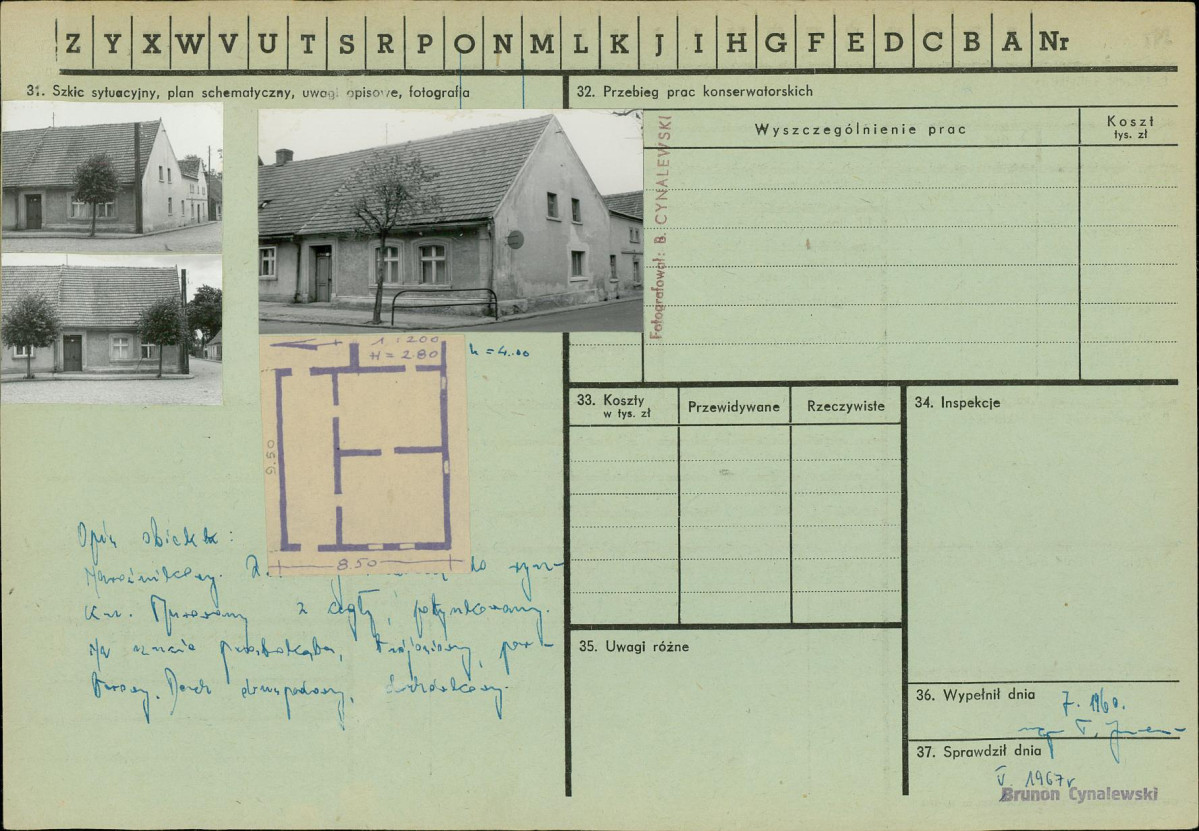 Z Y X W V U T S R P O N M L K J I H G F E D C B A Nr
31. Szkic sytuacyjny, plan schematyczny, uwagi opisowe, fotografia
32. Przebieg prac konserwatorskich
Wyszczególnienie prac
Koszt
tys. zł
Fotografował: B. CYNALEWSKI
1:200
H = 2.80
h = 4.00
9.50
8.50
33. Koszty
w tys. zł
Przewidywane
Rzeczywiste
34. Inspekcje
Opis obiektu:
Narożnikowy. do ryn-
ku. Murowany z cegły, potynkowany.
Na rzucie prostokąta, trójosiowy, par-
terowy. Dach dwuspadowy,
35. Uwagi różne
36. Wypełnił dnia
7. 1960.
mgr
37. Sprawdził dnia
V. 1967r
Brunon Cynalewski